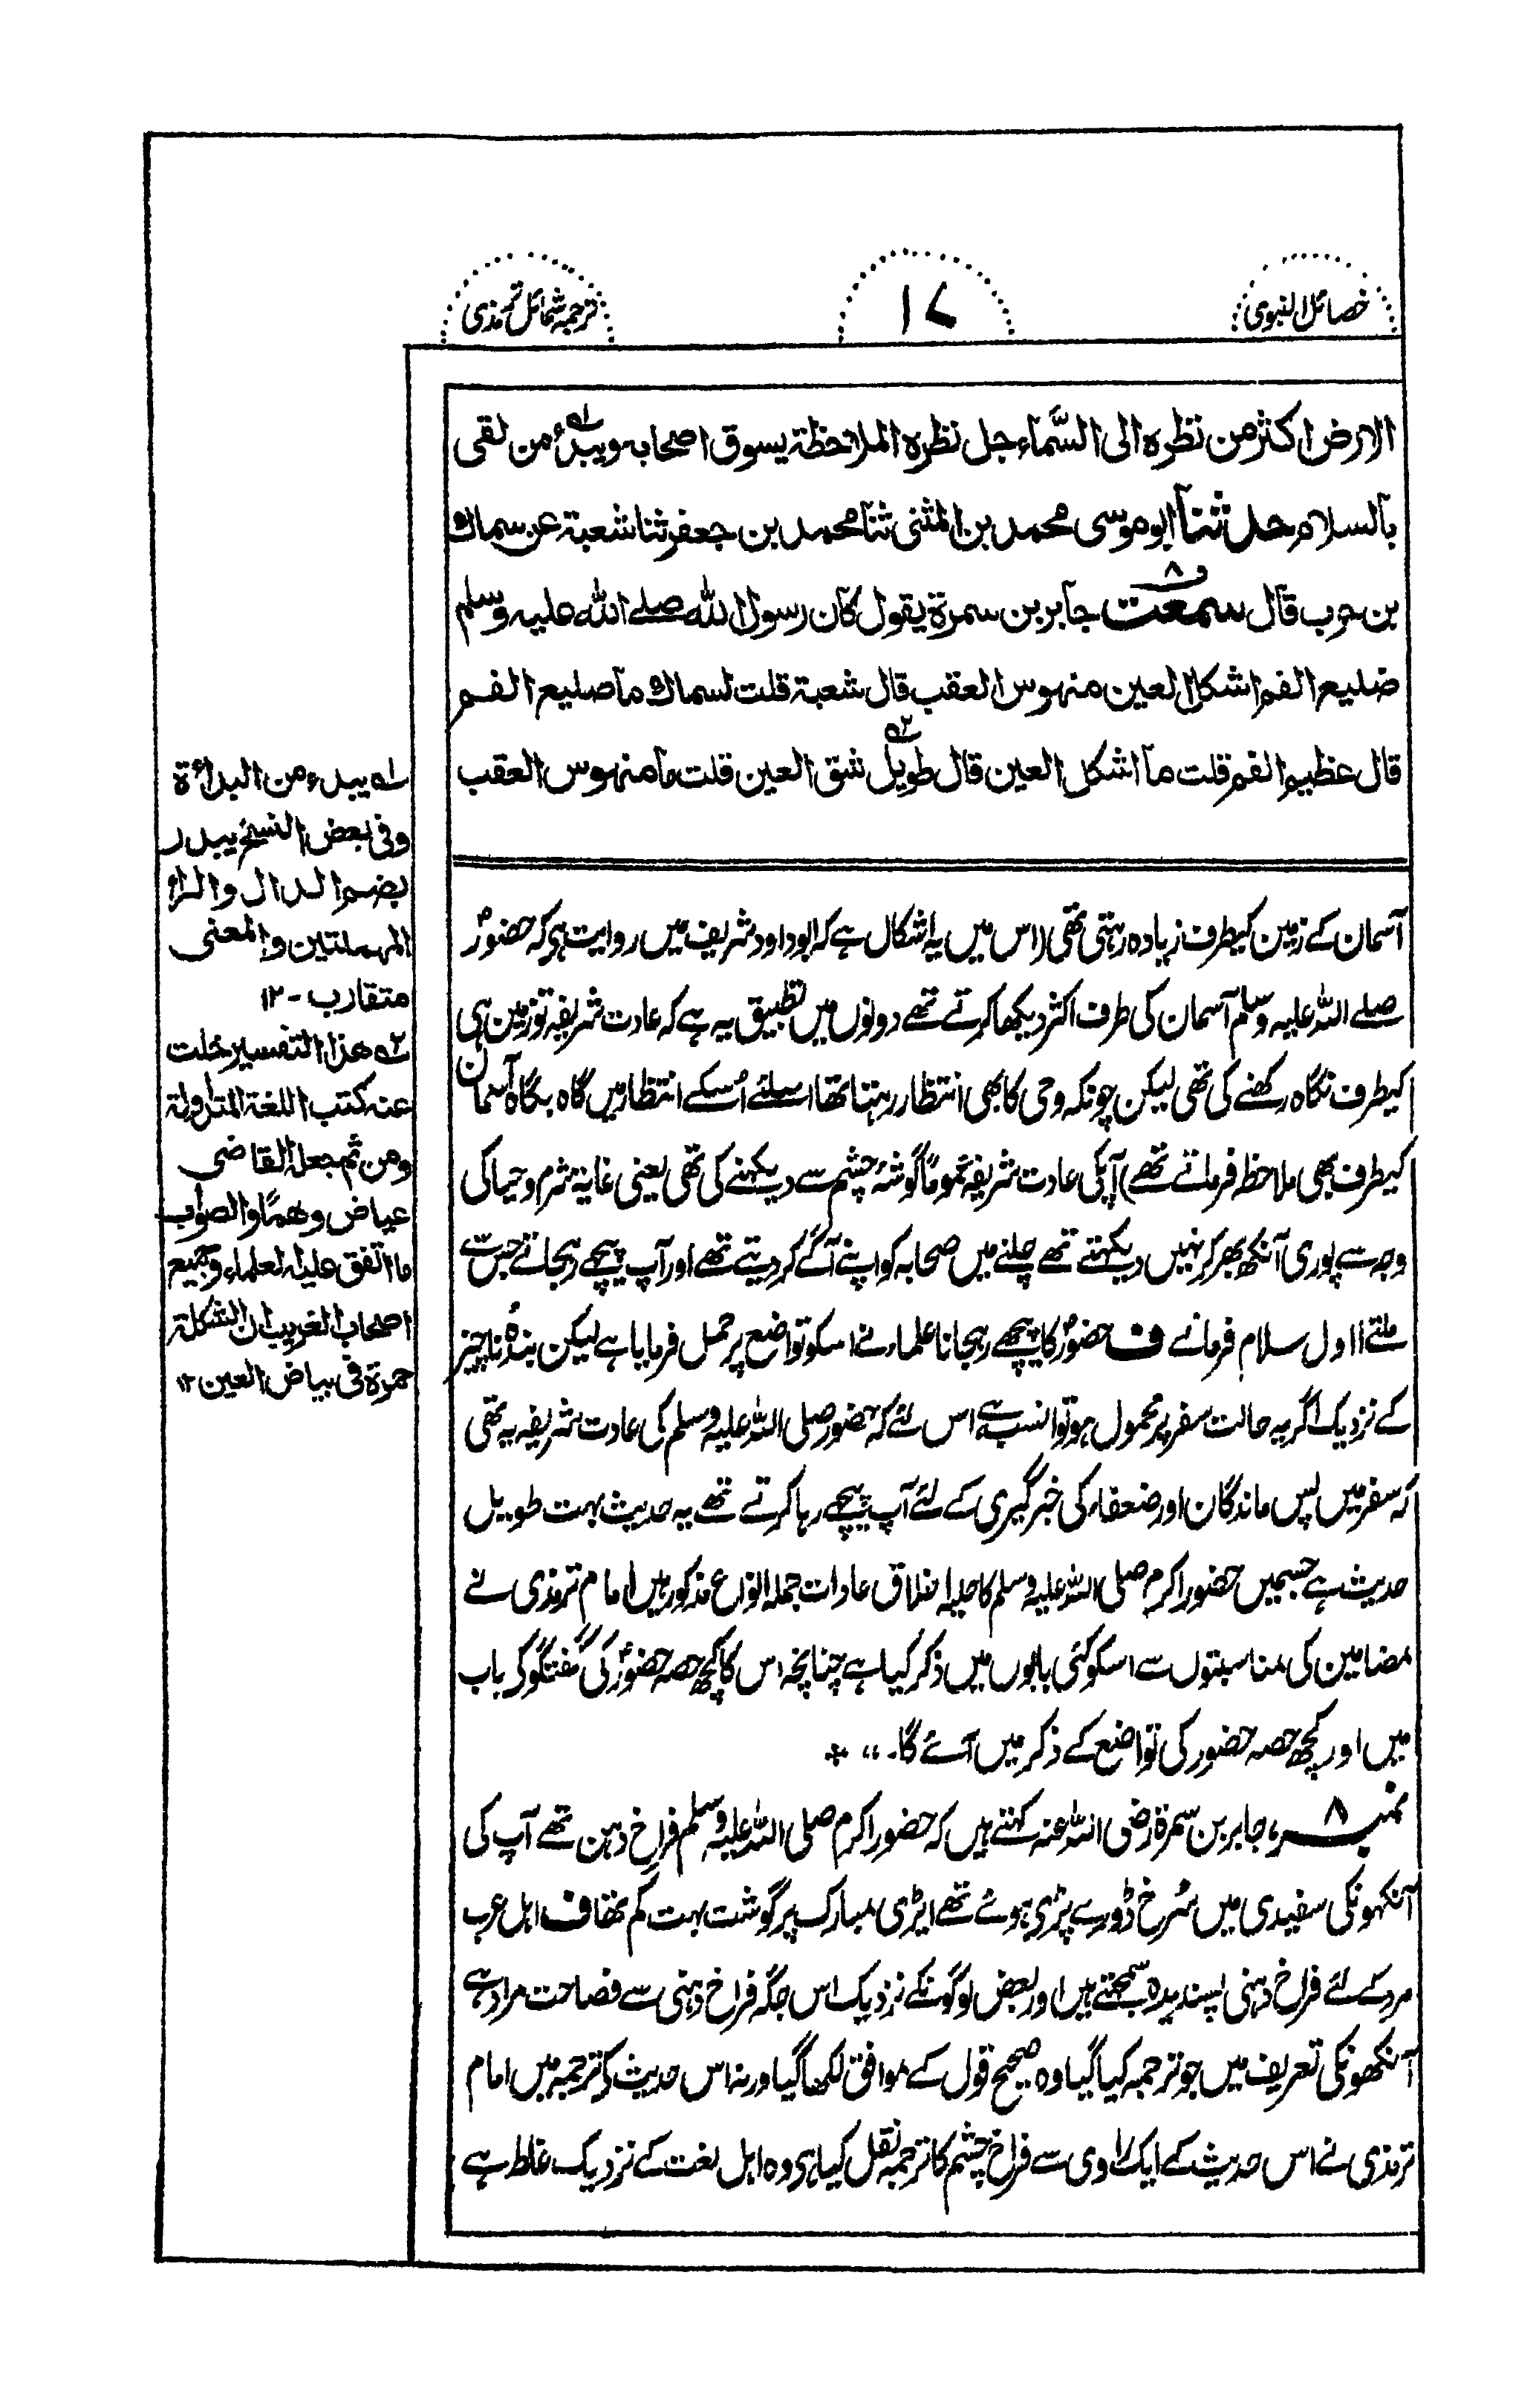 خصائل النبوی
۱۷
ترجمہ شمائل ترمذی
الارض اکثر من نظرہ الی السَّمآء جل نظرہ الملاحظۃ یسوق اصحابہ ویبدءُ ۱ہ من لقی
بآلسلام حدثنآ ابو موسی محمد بن المثنی ثنآ محمد بن جعفر ثنا شعبۃ عن سماك
بن حرب قآل سمعت ۸ جآبر بن سمرۃ یقول کآن رسول اللہ صلے اللہ علیہ وسلم
ضلیع الفم اشکل العین منہوس العقب قال شعبۃ قلت لسماك مآ ضلیع الفم
قال عظیم الفم قلت مآ اشکل العین قال طویل ۲ہ شق العین قلت مآ منہوس العقب
آسمان کے زمین کیطرف زیادہ رہتی تھی (اس میں یہ اشکال ہے کہ ابوداود شریف میں روایت ہی کہ حضورؐ
صلے اللہ علیہ وسلم آسمان کی طرف اکثر دیکھا کرتے تھے دونوں میں تطبیق یہ ہے کہ عادت شریفہ تو زمین ہی
کیطرف نگاہ رکھنے کی تھی لیکن چونکہ وحی کا بھی انتظار رہتا تھا اسلئے اُسکے انتظار میں گاہ بگاہ آسمان
کیطرف بھی ملاحظہ فرماتے تھے) آپکی عادت شریفہ عموماً گوشۂ چشم سے دیکہنے کی تھی یعنی غایۃ شرم و حیا کی
وجہ سے پوری آنکھ بھر کر نہیں دیکہتے تھے چلنے میں صحابہ کو اپنے آگے کر دیتے تھے اور آپ پیچھے رہجاتے جس سے
ملتے اول سلام فرماتے ف حضورؐ کا پیچھے رہجانا علماء نے اسکو تواضع پر حمل فرمایا ہے لیکن بندۂ ناچیز
کے نزدیک اگر یہ حالت سفر پر محمول ہو تو انسب ہے اس لئے کہ حضور صلی اللہ علیہ وسلم کی عادت شریفہ یہ تھی
کہ سفر میں پس ماندگان اور ضعفاء کی خبر گیری کے لئے آپ پیچھے رہا کرتے تھے یہ حدیث بہت طویل
حدیث ہے جسمیں حضور اکرم صلی اللہ علیہ وسلم کا حلیہ اخلاق عادات جملہ انواع مذکور ہیں امام ترمذی نے
مضامین کی مناسبتوں سے اسکو کئی بابوں میں ذکر کیا ہے چنانچہ اس کا کچھ حصہ حضورؐ کی گفتگو کی باب
میں اور کچھ حصہ حضور کی تواضع کے ذکر میں آئے گا۔
نمبر ۸ جابر بن سمرۃ رضی اللہ عنہ کہتے ہیں کہ حضور اکرم صلی اللہ علیہ وسلم فراخ دہن تھے آپ کی
آنکہونکی سفیدی میں سُرخ ڈورے پڑی ہوئے تھے ایڑی مبارک پر گوشت بہت کم تھا ف اہل عرب
مرد کے لئے فراخ دہنی پسندیدہ سمجھتے ہیں اور بعض لوگونکے نزدیک اس جگہ فراخ دہنی سے فصاحت مراد ہے
آنکھونکی تعریف میں جو ترجمہ کیا گیا وہ صحیح قول کے موافق لکھا گیا ورنہ اس حدیث کی ترجمہ میں امام
ترمذی نے اس حدیث کے ایک راوی سے فراخ چشم کا ترجمہ نقل کیا ہی وہ اہل لغت کے نزدیک غلط ہے
۱ہ یبدء من البدأۃ
وفی بعض النسخ یبدر
بضم الدال والراء
المہملتین والمعنی
متقارب۔۱۲
۲ہ ھذا التفسیر خلت
عنہ کتب اللغۃ المتداولۃ
ومن ثم جعلہ القاضی
عیاض وھمًا والصواب
ما اتفق علیہ العلماء وجمیع
اصحاب الغریب ان الشکلۃ
حمرۃ فی بیاض العین ۱۲